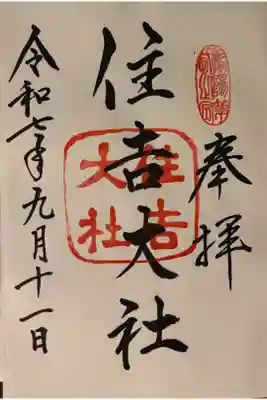 奉拝
住吉大社
住吉
大社
令和七年九月十一日